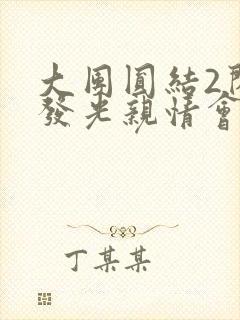 大團圓結2
發光親情會
丁某某